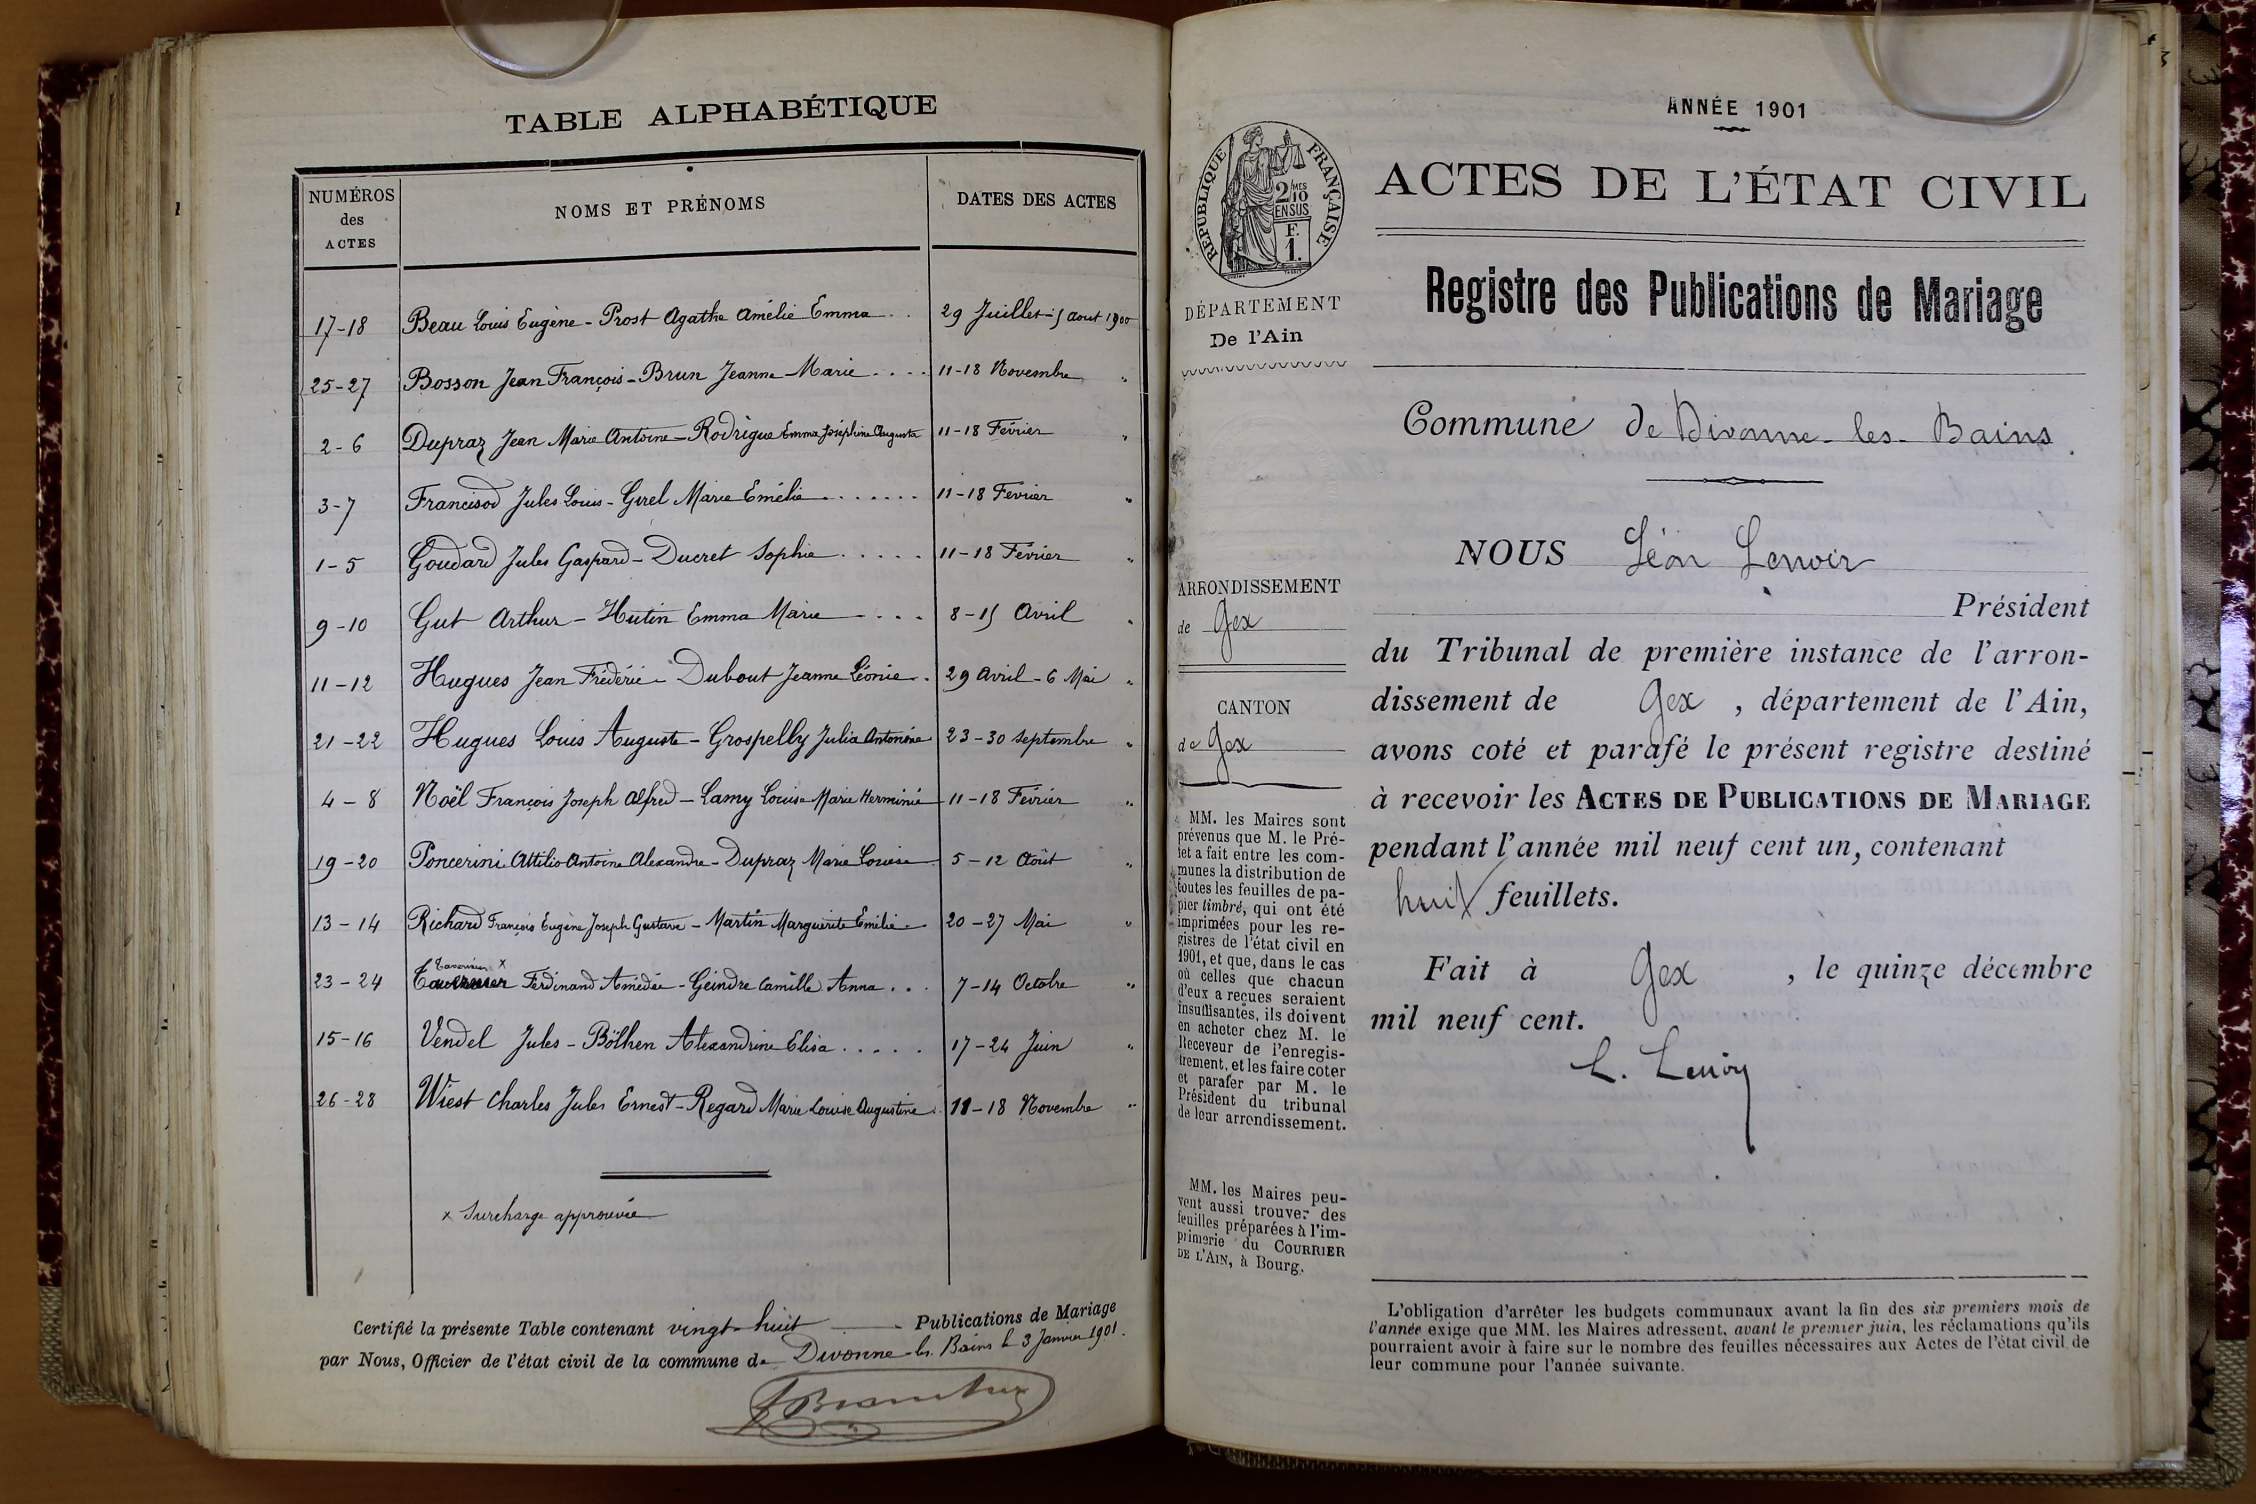 TABLE ALPHABÉTIQUE
NUMÉROS
des
ACTES
NOMS ET PRÉNOMS
DATES DES ACTES
17-18 Beau Louis Eugène - Prost Agathe Amélie Emma . . 29 Juillet - 5 Aout 1900
25-27 Bosson Jean François - Brun Jeanne Marie . . . . 11-18 Novembre "
2-6 Dupraz Jean Marie Antoine - Rodrigue Emma Joséphine Augusta 11-18 Février "
3-7 Francisod Jules Louis - Girel Marie Emélie . . . . . . . 11-18 Février "
1-5 Goudard Jules Gaspard - Ducret Sophie . . . . . 11-18 Février "
9-10 Gut Arthur - Hutin Emma Marie . . . . 8-15 Avril "
11-12 Hugues Jean Frédéric - Dubout Jeanne Léonie . 29 Avril - 6 Mai "
21-22 Hugues Louis Auguste - Grospelly Julia Antonine 23-30 Septembre "
4-8 Noël François Joseph Alfred - Lamy Louise Marie Herminie 11-18 Février "
19-20 Poncerini Attilio Antoine Alexandre - Dupraz Marie Louise 5-12 Août "
13-14 Richard François Eugène Joseph Gustave - Martin Marguerite Emilie . 20-27 Mai "
x
23-24 Ferdinand Amédée - Geindre Camille Anna . . . 7-14 Octobre "
15-16 Vendel Jules - Bölhen Alexandrine Elisa . . . . . 17-24 Juin "
26-28 Wiest Charles Jules Ernest - Regard Marie Louise Augustine . 11-18 Novembre "
x Surcharge approuvée
Certifié la présente Table contenant vingt-huit Publications de Mariage
par Nous, Officier de l'état civil de la commune de Divonne-les-Bains le 3 Janvier 1901.
RÉPUBLIQUE FRANÇAISE
2/10 MES
EN SUS
F.
1.
DÉPARTEMENT
De l'Ain
ARRONDISSEMENT
de Gex
CANTON
de Gex
MM. les Maires sont
prévenus que M. le Pré-
fet a fait entre les com-
munes la distribution de
toutes les feuilles de pa-
pier timbré, qui ont été
imprimées pour les re-
gistres de l'état civil en
1901, et que, dans le cas
où celles que chacun
d'eux a reçues seraient
insuffisantes, ils doivent
en acheter chez M. le
Receveur de l'enregis-
trement, et les faire coter
et parafer par M. le
Président du tribunal
de leur arrondissement.
MM. les Maires peu-
vent aussi trouver des
feuilles préparées à l'im-
primerie du COURRIER
DE L'AIN, à Bourg.
ANNÉE 1901
ACTES DE L'ÉTAT CIVIL
Registre des Publications de Mariage
Commune de Divonne-les-Bains.
NOUS Léon Lenoir
Président
du Tribunal de première instance de l'arron-
dissement de Gex , département de l'Ain,
avons coté et parafé le présent registre destiné
à recevoir les ACTES DE PUBLICATIONS DE MARIAGE
pendant l'année mil neuf cent un, contenant
huit feuillets.
Fait à Gex , le quinze décembre
mil neuf cent.
L. Lenoir
L'obligation d'arrêter les budgets communaux avant la fin des six premiers mois de
l'année exige que MM. les Maires adressent, avant le premier juin, les réclamations qu'ils
pourraient avoir à faire sur le nombre des feuilles nécessaires aux Actes de l'état civil de
leur commune pour l'année suivante.